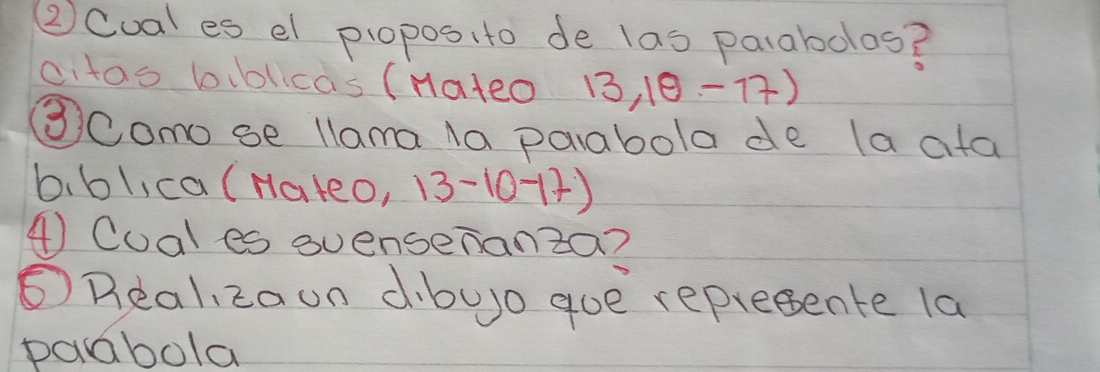 ② Cual es el proposito de las parabolas?
citas biblicas (Mateo 13,10-17)
③ Como se llama la parabola de la cita
biblica (Mateo, 13-10-17)
④ Cual es suenseñanza?
⑤ Realiza un dibujo que represente la
parabola